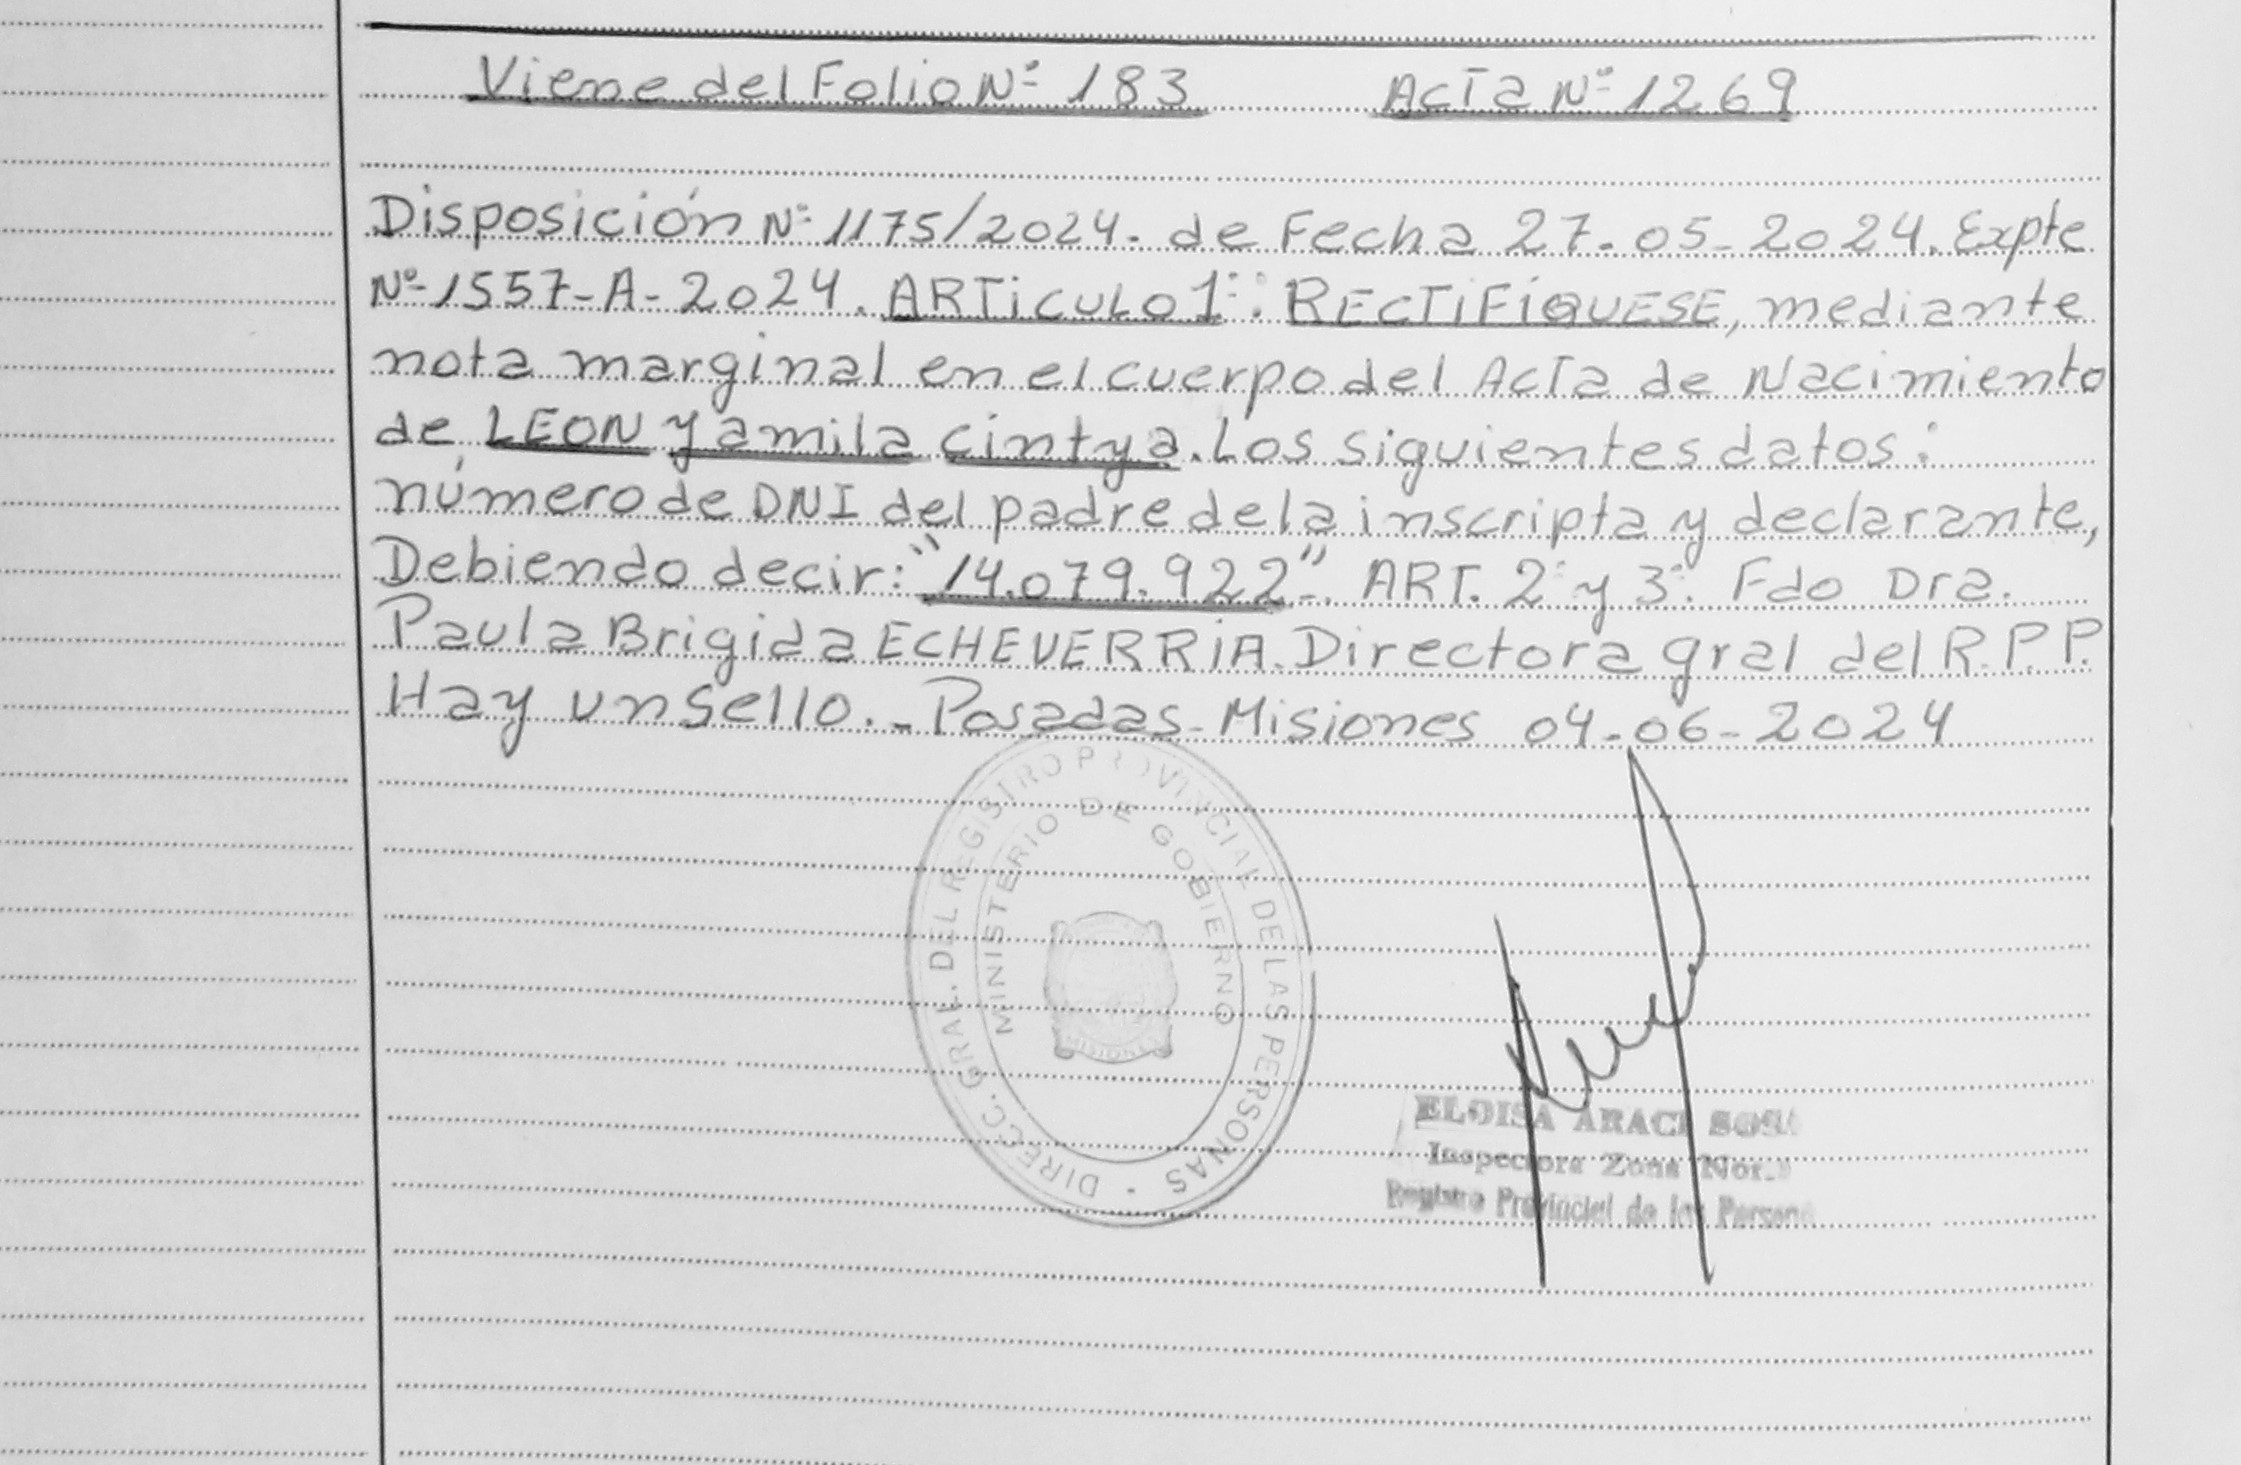 Viene del Folio Nº 183 Acta Nº 1269
Disposición Nº 1175/2024. de Fecha 27-05-2024. Expte
Nº 1557-A-2024. ARTiCULO 1º: RECTiFíQUESE, mediante
nota marginal en el cuerpo del Acta de Nacimiento
de LEON Yamila cintya. Los siguientes datos:
número de DNI del padre de la inscripta y declarante,
Debiendo decir: "14.079.922". ART. 2º y 3º. Fdo Dra.
Paula Brigida ECHEVERRiA. Directora gral del R.P.P.
Hay un sello._ Posadas-Misiones 04-06-2024
DIRECC. GRAL. DEL REGISTRO PROVINCIAL DE LAS PERSONAS -
MINISTERIO DE GOBIERNO
MISIONES
ELOISA ARACI SOSA
Inspectora Zona Nor
Registro Provincial de las Persona